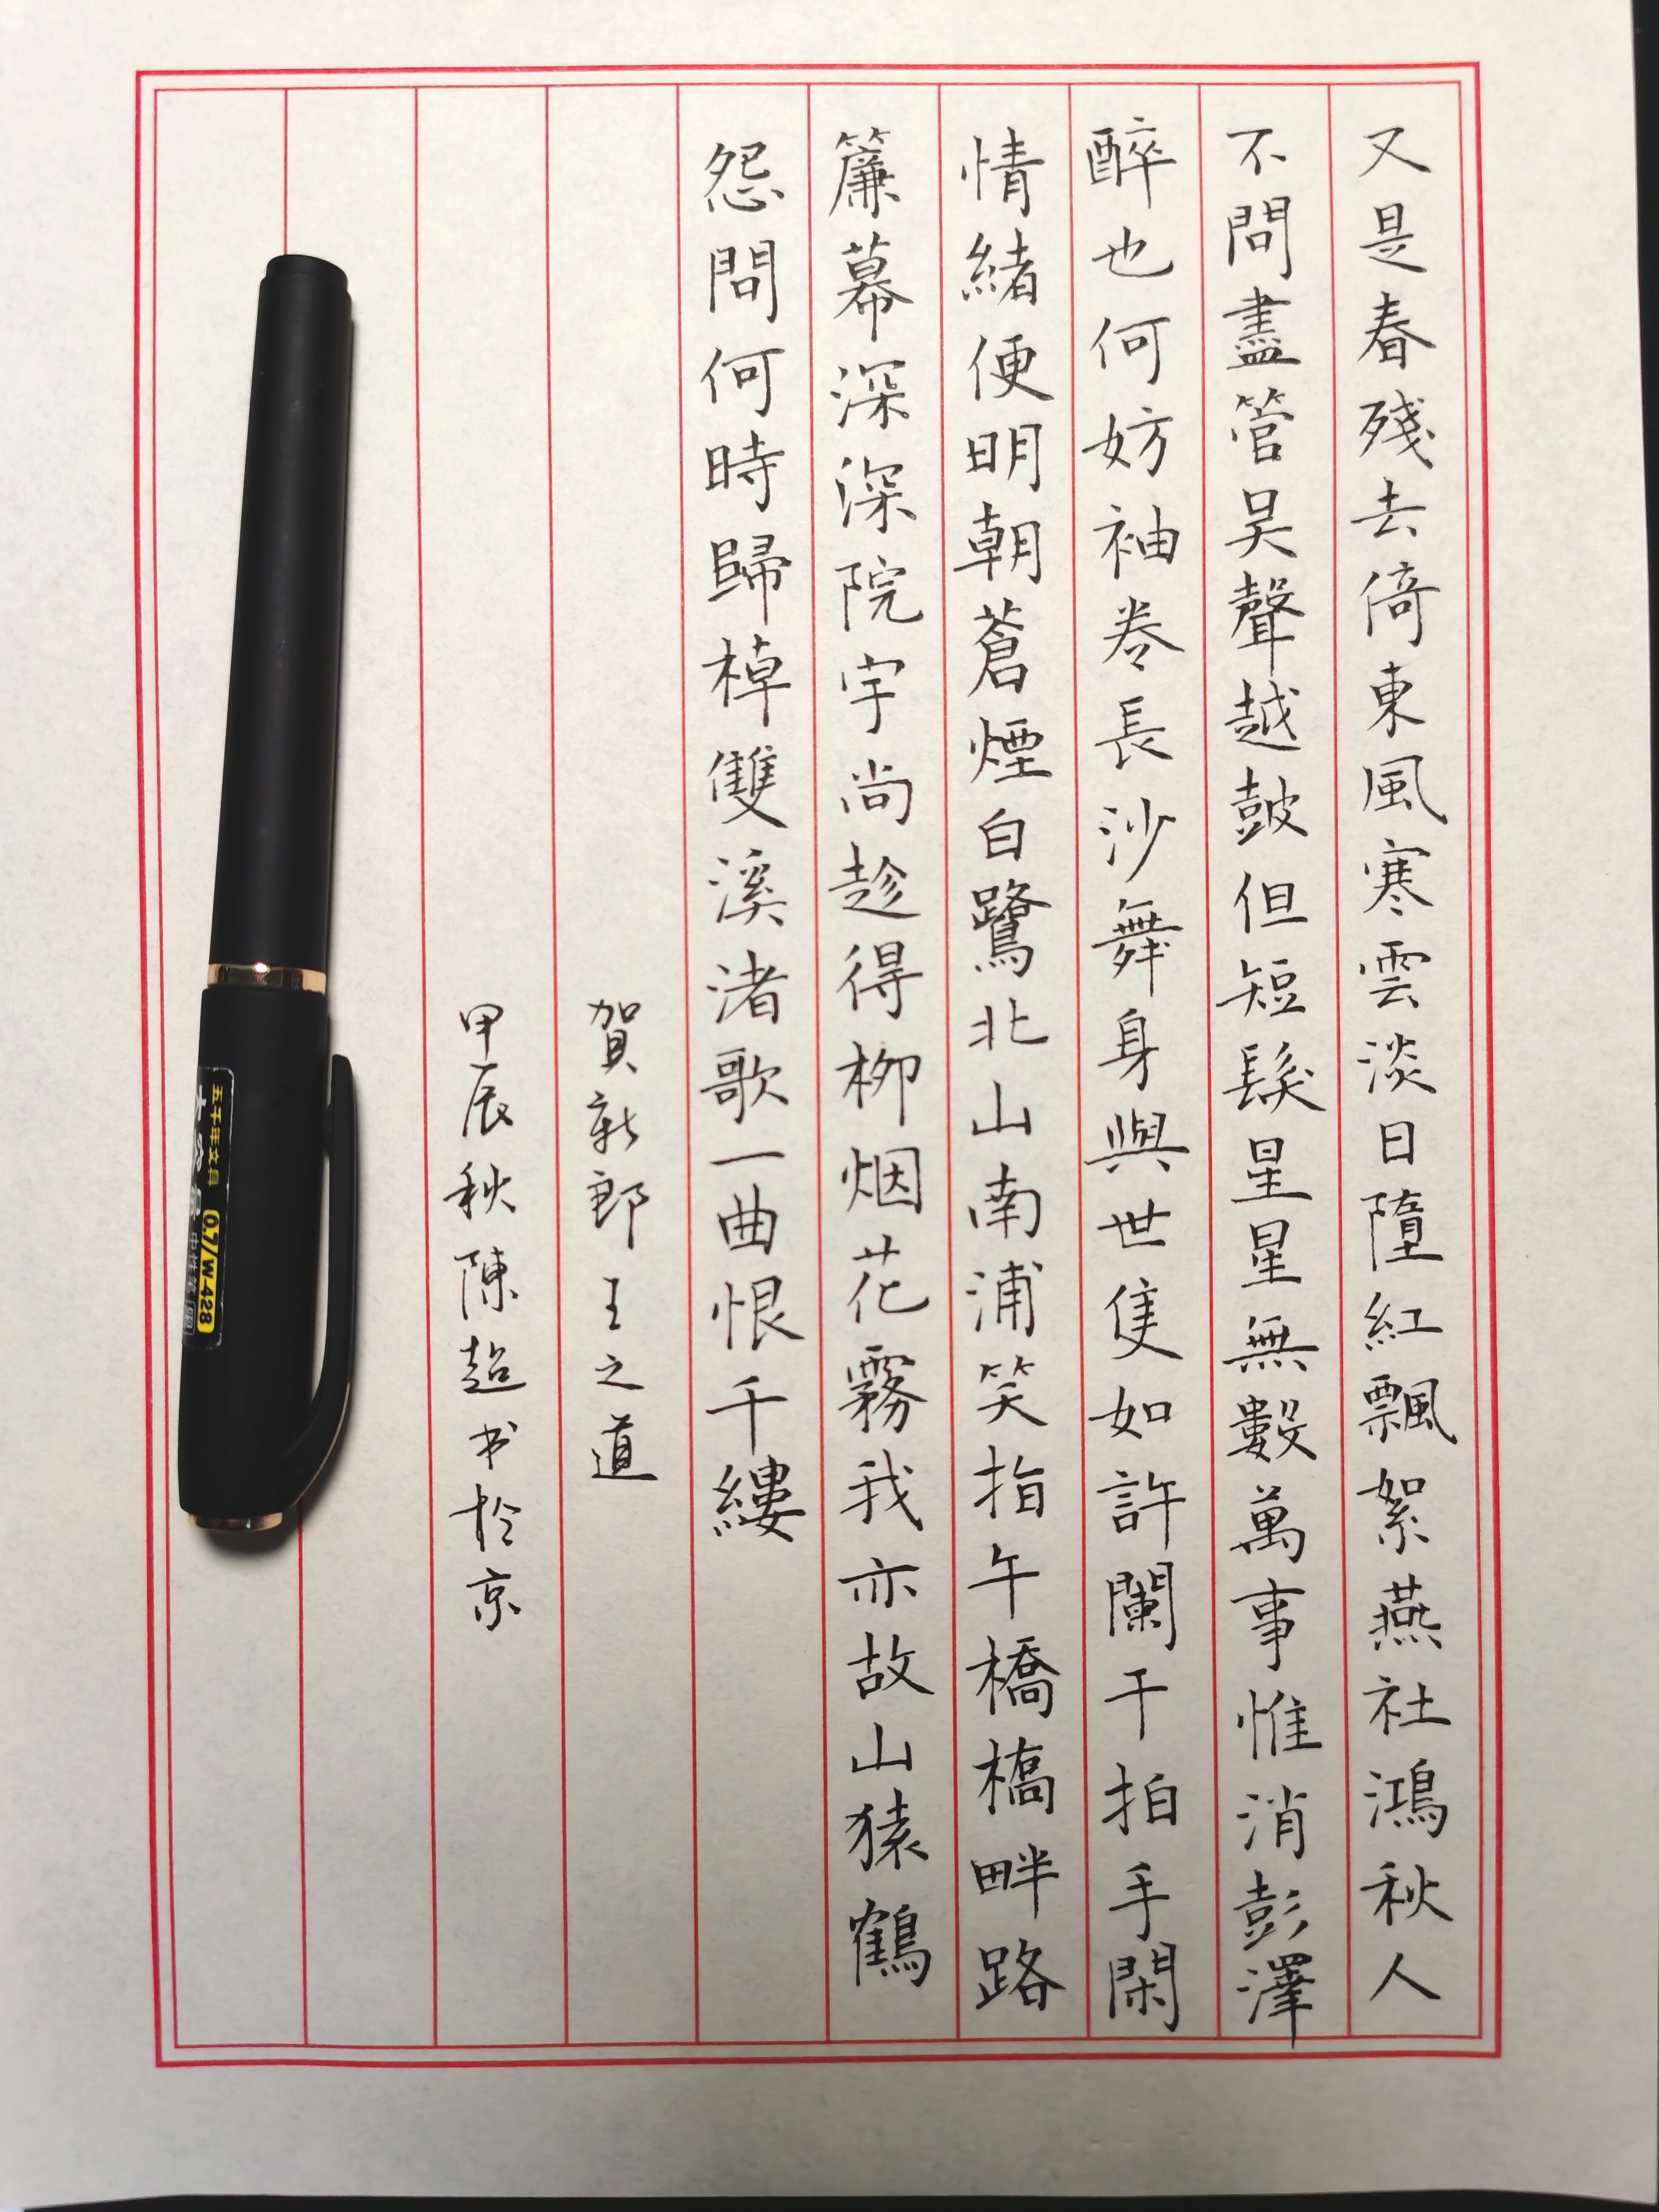 又是春殘去倚東風寒雲淡日墮紅飄絮燕社鴻秋人
不問盡管吴聲越鼓但短髮星星無數萬事惟消彭澤
醉也何妨袖卷長沙舞身與世隻如許闌干拍手閑
情緒便明朝蒼煙白鷺北山南浦笑指午橋橋畔路
簾幕深深院宇尚趁得柳烟花霧我亦故山猿鶴
怨問何時歸棹雙溪渚歌一曲恨千縷
賀新郎王之道
甲辰秋陳超书於京
五千年文具
0.7/W-428
中性笔